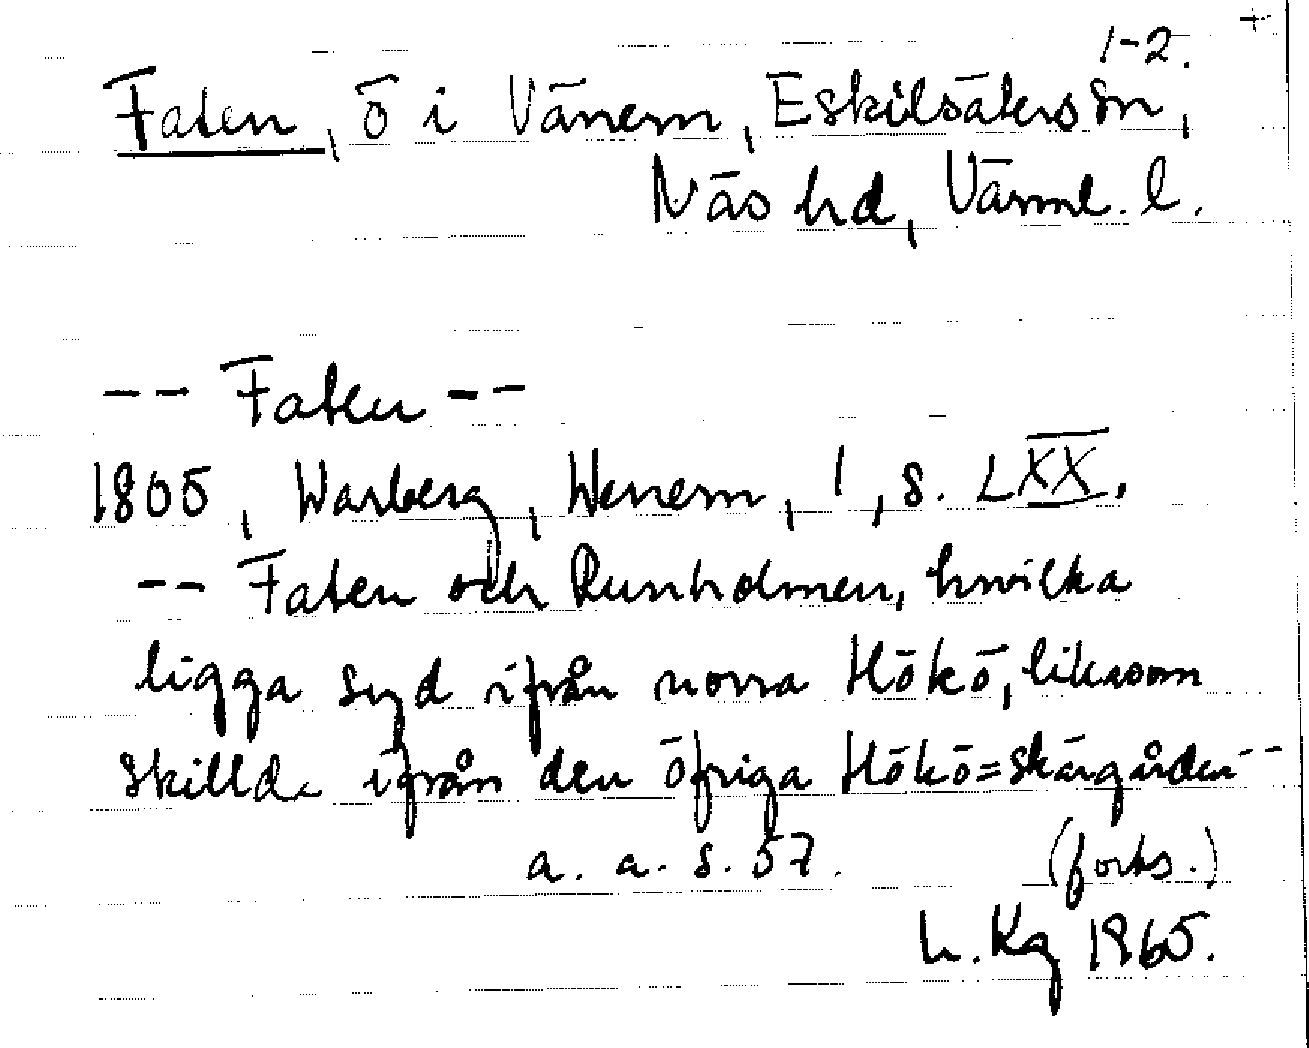 1-2.
Faten, ö i Vänern, Eskilsäters sn,
Näs hd, Värml. l.
-- Faten --
1805, Warberg, Wenern, 1, s. LXX.
-- Faten och Runholmen, hwilka
ligga syd ifrån norra Hökö, liksom
skillda ifrån den öfriga Hökö=skärgården--
a. a. s. 57. (forts.)
h. Kg 1965.